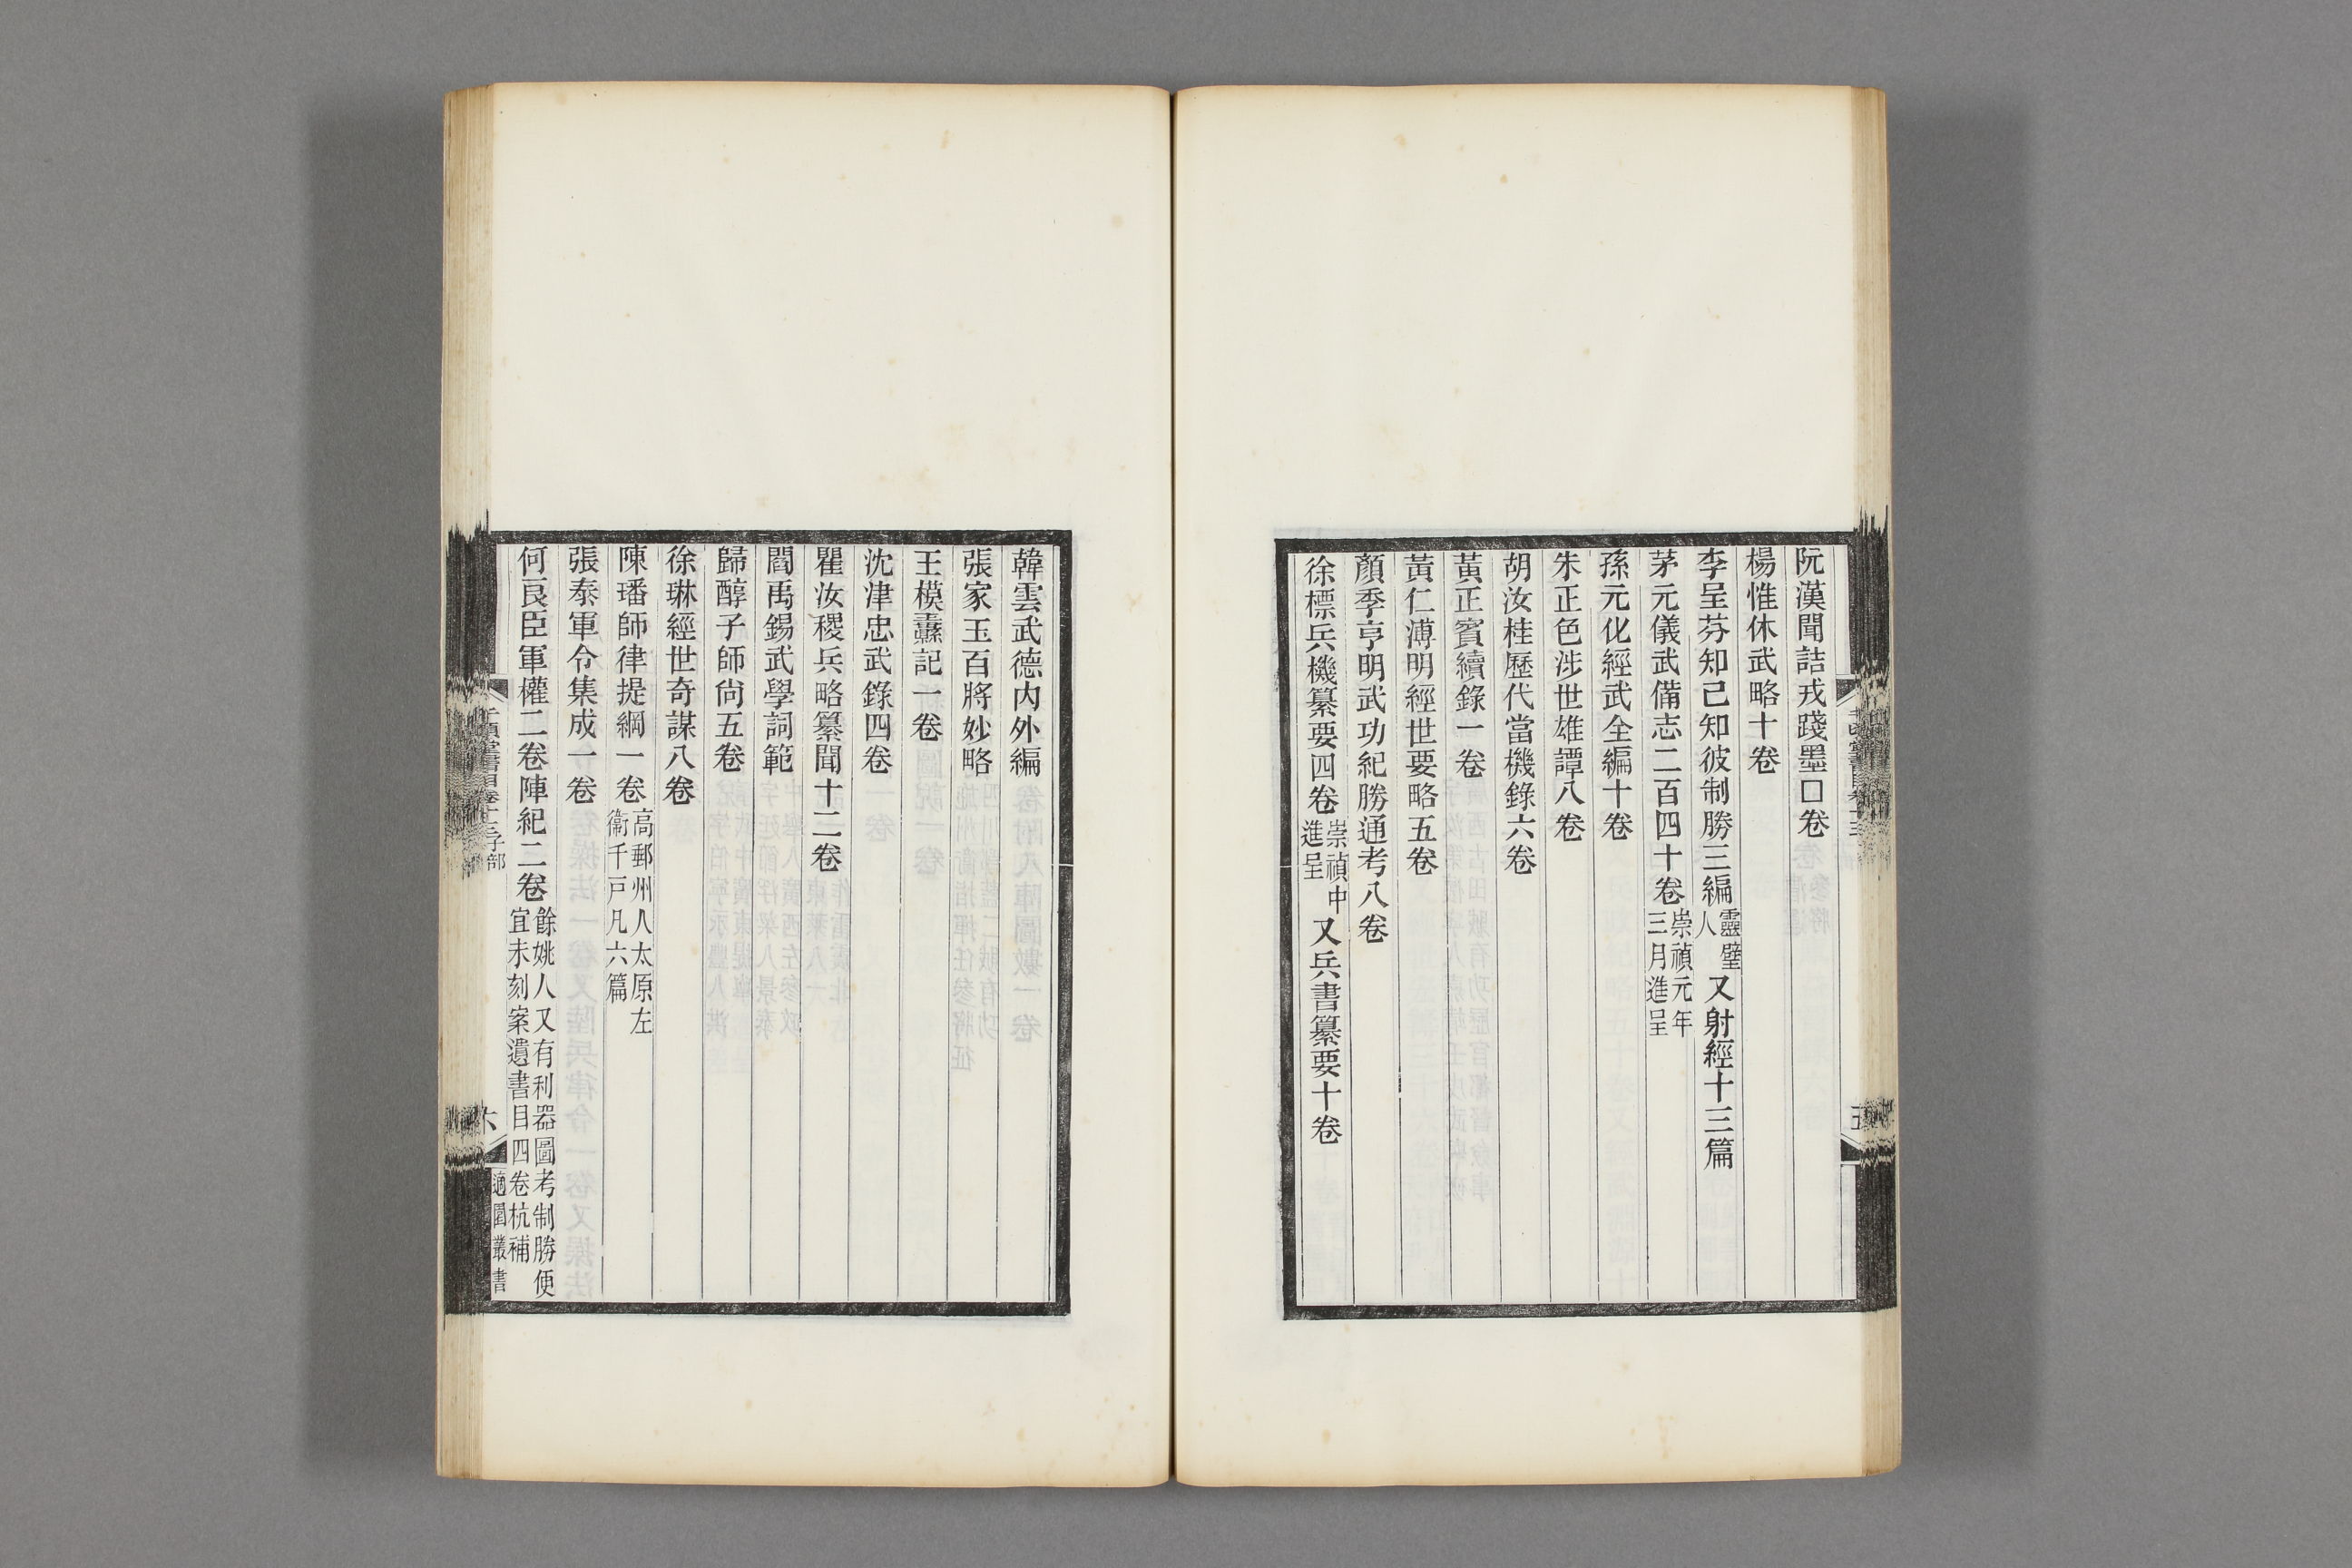 阮漢聞詰戎踐墨囗卷
楊惟休武略十卷
李呈芬知己知彼制勝三編靈璧人又射經十三篇
茅元儀武備志二百四十卷崇禎元年三月進呈
孫元化經武全編十卷
朱正色涉世雄譚八卷
胡汝桂歷代當機錄六卷
黃正賓續錄一卷
黃仁溥明經世要略五卷
顏季亨明武功紀勝通考八卷
徐標兵機纂要四卷崇禎中進呈又兵書纂要十卷
五
韓雲武德內外編
張家玉百將妙略
王模纛記一卷
沈津忠武錄四卷
瞿汝稷兵略纂聞十二卷
閻禹錫武學詞範
歸醇子師尙五卷
徐琳經世奇謀八卷
陳璠師律提綱一卷高郵州人太原左衞千戸凡六篇
張泰軍令集成一卷
何良臣軍權二卷陣紀二卷餘姚人又有利器圖考制勝便宜未刻案遺書目四卷杭補
千頃堂書目卷十三子部
六
適園叢書